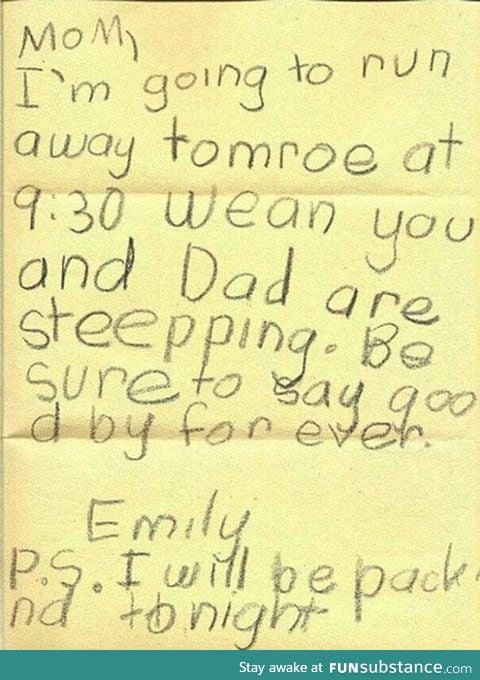 MOM,
I'm going to run
away tomroe at
9:30 wean you
and Dad are
steepping. Be
sure to say goo
d by for ever.
Emily
P.S. I will be pack
nd tonight
Stay awake at FUNsubstance.com